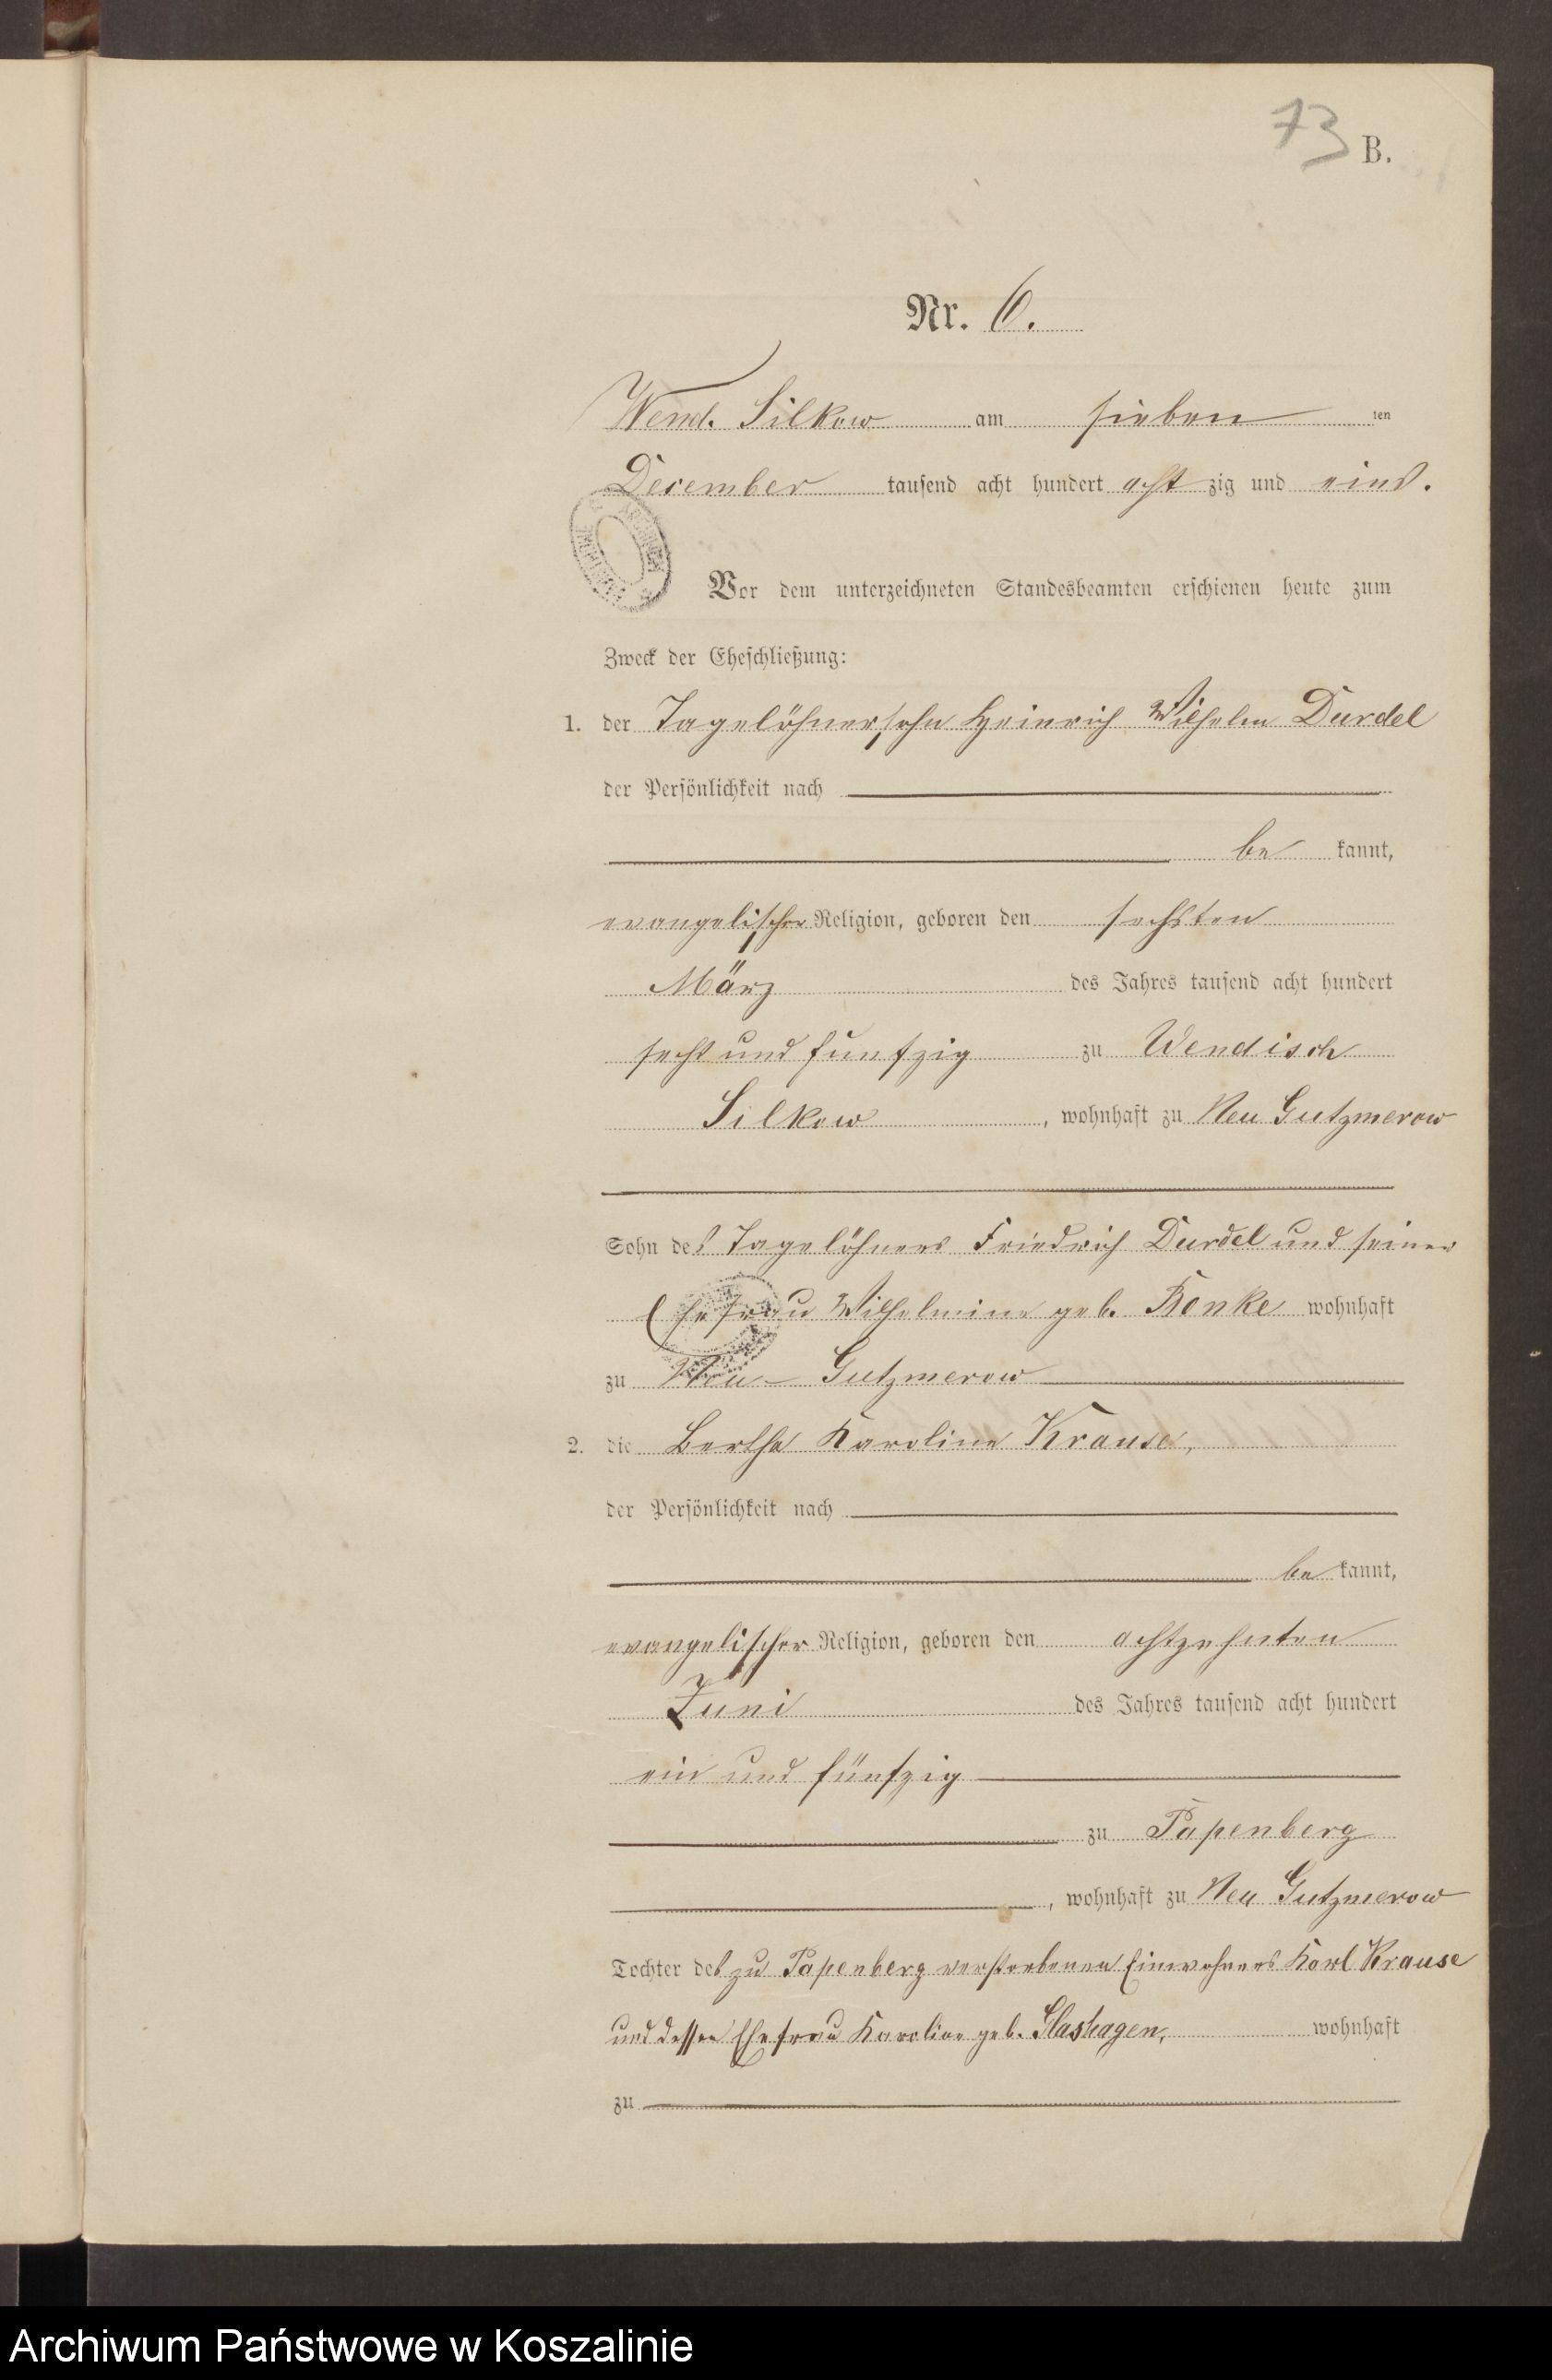 73 B.
Nr. 6.
Wend. Silkow am sieben ten
December tausend acht hundert acht zig und eins.
Vor dem unterzeichneten Standesbeamten erschienen heute zum
Zweck der Eheschließung:
1. der Tagelöhnersohn Heinrich Wilhelm Durdel
der Persönlichkeit nach
be kannt,
evangelischer Religion, geboren den sechsten
März des Jahres tausend acht hundert
sechs und funfzig zu Wendisch
Silkow, wohnhaft zu Neu Gutzmerow
Sohn des Tagelöhners Friedrich Durdel und seiner
Ehefrau Wilhelmine geb. Ronke wohnhaft
zu Neu-Gutzmerow
2. die Bertha Karoline Krause,
der Persönlichkeit nach
be kannt,
evangelischer Religion, geboren den achtzehnten
Juni des Jahres tausend acht hundert
ein und fünfzig
zu Papenberg
, wohnhaft zu Neu Gutzmerow
Tochter des zu Papenberg verstorbenen Einwohners Karl Krause
und dessen Ehefrau Karoline geb. Glashagen, wohnhaft
zu
Archiwum Państwowe w Koszalinie